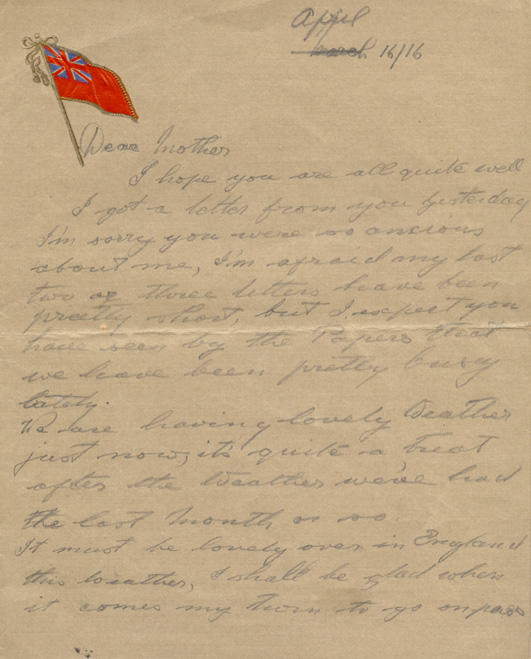 April
March 16/16
Dear Mother
I hope you are all quite well
I got a letter from you yesterday
I'm sorry you were so ancious
about me, I'm afraid my last
two or three letters have been
pretty short, but I expect you
have seen by the Papers that
we have been pretty busy
lately.
We are having lovely Weather
just now, it's quite a treat
after the Weather we've had
the last Month or so
It must be lovely over in England
this weather, I shall be glad when
it comes my turn to go on pass